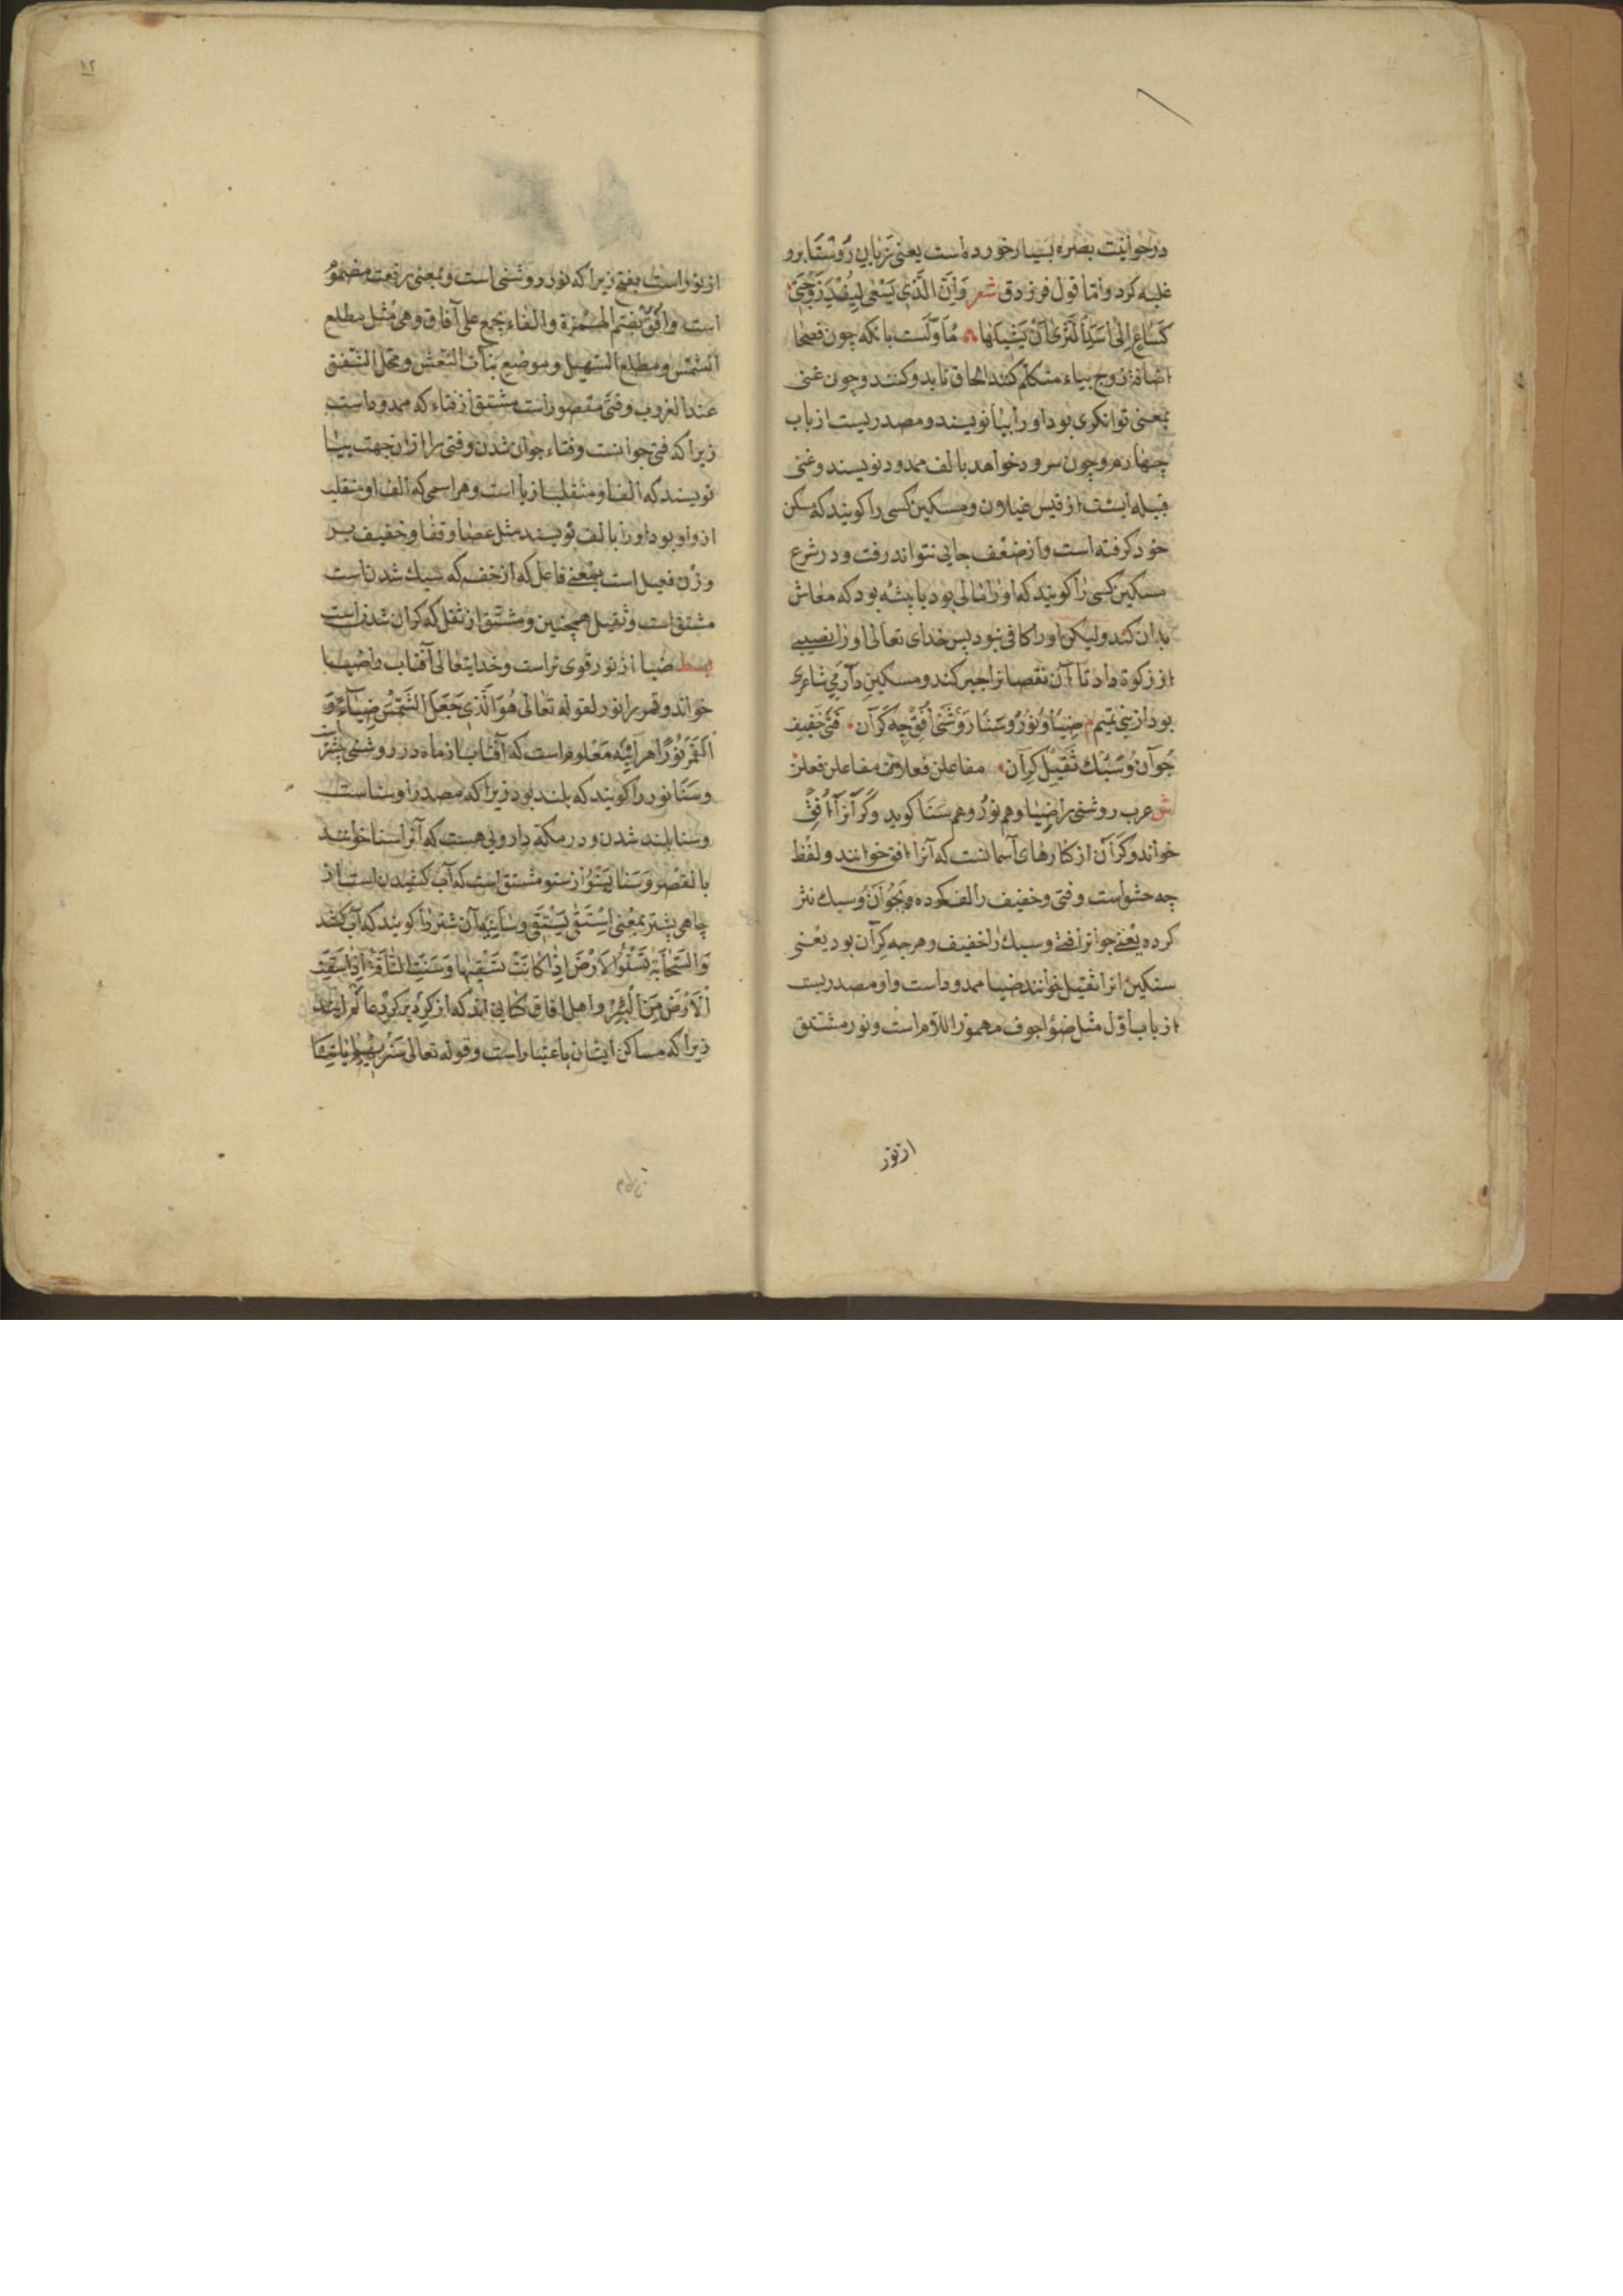 درحوالیت بصره بسیار خورده است یعنی زبان روستا برو
غلبه کرد و أمّا قول فرزدق شعر وَاِنَّ الَّذِی یَسْعٰی لِیُفْسِدَ زَوْجَتِی
کَسَاعٍ اِلٰی اُسْدِ الشَّرٰی مُأوّلست بانکه چون فصحا
اضافهٔ زوج بیاء متکلم کنند الحاق تا بدو کنند و چون غنی
بمعنی توانکری بود او را بیا نویسند و مصدریست از باب
چهارم و چون سرود خواهد بالف ممدود نویسند و غنی
قبیله ایست از قیس غیلان و مسکین کسی را کویند که سکن
خود کرفته است و از ضعف جایی نتواند رفت و در شرع
مسکین کسی را کویند که او را مالی بود یا پیشه بود که معاش
بدان کند و لیکن او را کافی نبود پس خدای تعالی او را نصیبی
از زکوة داد تا آن نقصانرا جبر کند و مسکین دارمی شاعری
بود از بنی تمیم م ضِیَا وَ نُوْر و سَنَا رَوْشَنٰی اُفُقْ چه کَرَان فَتٰی خَفِیْف
جُوَان و سَبُک ثَقِیْل کِرَان مفاعلن فعلاتن مفاعلن فعلن
ش عرب روشنی را ضیا و هم نور و هم سَنَا کوید و کَرَانرا اُفُق
خواند و کَرَان از کنارهای آسمانست که آنرا افق خوانند و لفظ
چه حشو است و فتی و خفیف را لف کرده و بجوان و سبک نثر
کرده یعنی جوانرا فتی و سبک را خفیف و هرچه کِران بود یعنی
سنکین انرا ثقیل خوانند ضیا ممدود است و او مصدریست
از باب اوّل مثل ضوٴ اجوف مهموز اللام است و نور مشتق
از نور
۱۲
از نور است بفتح زیرا که نور روشنی است و بمعنی رفعت مضموم
است و افق بضم الهمزة والفاء یجمع علی آفاق و هی مثل مطلع
الشمس و مطلع السهیل و موضع بنات النعش و محل الشفق
عند الغروب و فتی مقصور است مشتق از فتاء که ممدود است
زیرا که فتی جوانست و فتاء جوان شدن و فتی را ازان جهت بیا
نویسند که الف او منقلب از یا است و هر اسمی که الف او منقلب
از واو بود او را بالف نویسند مثل عصا و قفا و خفیف بر
وزن فعیل است بمعنی فاعل که از خف که سبک شدن است
مشتق است و ثقیل همچنین و مشتق از ثقل که کران شدن است
بسط ضیا از نور قوی تر است و خدایتعالی آفتاب را ضیا
خواند و قمر را نور لقوله تعالی هُوَ الَّذِی جَعَلَ الشَّمْسَ ضِیَآءً وَ
الْقَمَرَ نُوْرًا هر آینه معلوم است که آفتاب از ماه در روشنی بیشتر است
و سَنَا نور را کویند که بلند بود زیرا که مصدر او سناست
و سنا بلند شدن و در مکه دارویی هست که آنرا سنا خوانند
بالقصر و سَنَا یَسْنُوْ از سنو مشتق است که آب کشیدن است از
چاهی بشتر بمعنی اِسْتَقٰی یَسْتَقِی و سانیه آن شتر را کویند که آب کشد
وَالسَّحَابَةُ تَسْنُو الْاَرْضَ اِذَا کَانَتْ تَسْقِیْهَا وَ سَنَتِ النَّاقَةُ اِذَا سَقَتِ
الْاَرْضَ مِنَ الْبِئْرِ و اهل افاق
زیرا که مساکن ایشان باعتبار است و قوله تعالی سَنُرِیْهِمْ اٰیَاتِنَا